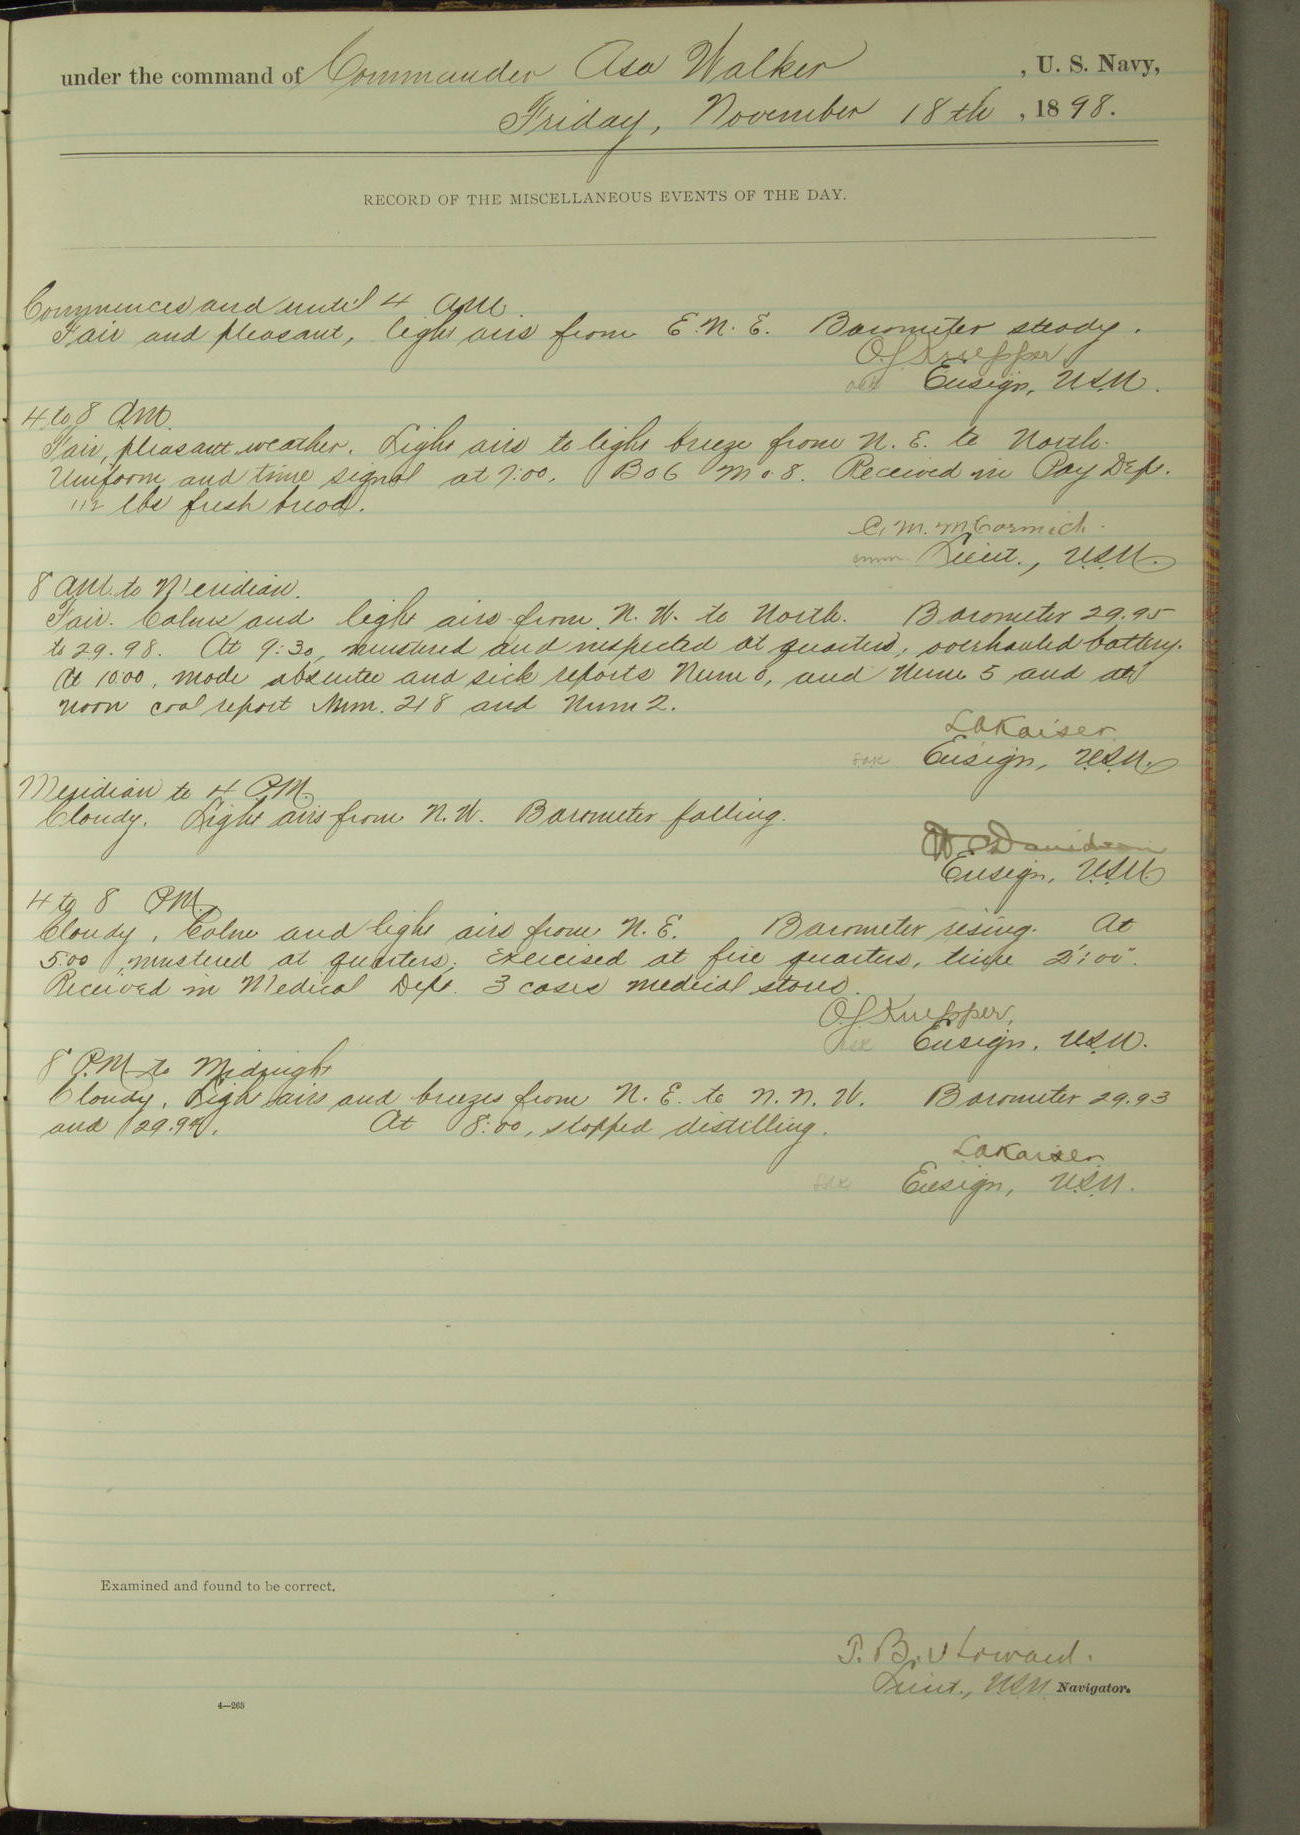 under the command of Commander Asa Walker, U. S. Navy,
Friday, November 18th, 1898.
RECORD OF THE MISCELLANEOUS EVENTS OF THE DAY.
Commences and until 4 A.M.
Fair and pleasant, light airs from E.N.E. Barometer steady.
O.J. Knepper
Ensign, U.S.N.
4 to 8 A.M.
Fair, pleasant weather. Light airs to light breeze from N.E. to North.
Uniform and time signal at 7:00. B o 6 M o 8. Received in Pay Dept.
112 lbs fresh bread.
C. M. McCormick.
Lieut., U.S.N.
8 A.M. to Meridian.
Fair. Calms and light airs from N.W. to North. Barometer 29.95
to 29.98. At 9:30, mustered and inspected at quarters, overhauled battery.
At 10:00, made absentee and sick reports Num 0, and Num 5 and at
noon coal report Num. 218 and Num 2.
L A Kaiser
Ensign, U.S.N.
Meridian to 4 P.M.
Cloudy. Light airs from N.W. Barometer falling.
W C Davidson
Ensign, U.S.N.
4 to 8 P.M.
Cloudy, Calm and light airs from N.E. Barometer rising. At
5:00 mustered at quarters; Exercised at fire quarters, time 2':00".
Received in Medical Dept. 3 cases medical stores.
O.J. Knepper,
Ensign, U.S.N.
8 P.M. to Midnight
Cloudy, Light airs and breezes from N.E. to N.N.W. Barometer 29.93
and 29.94. At 8:00, stopped distilling.
L A Kaiser
LAK Ensign, U.S.N.
Examined and found to be correct.
T. B. Howard.
Lieut., U.S.N. Navigator.
4—265